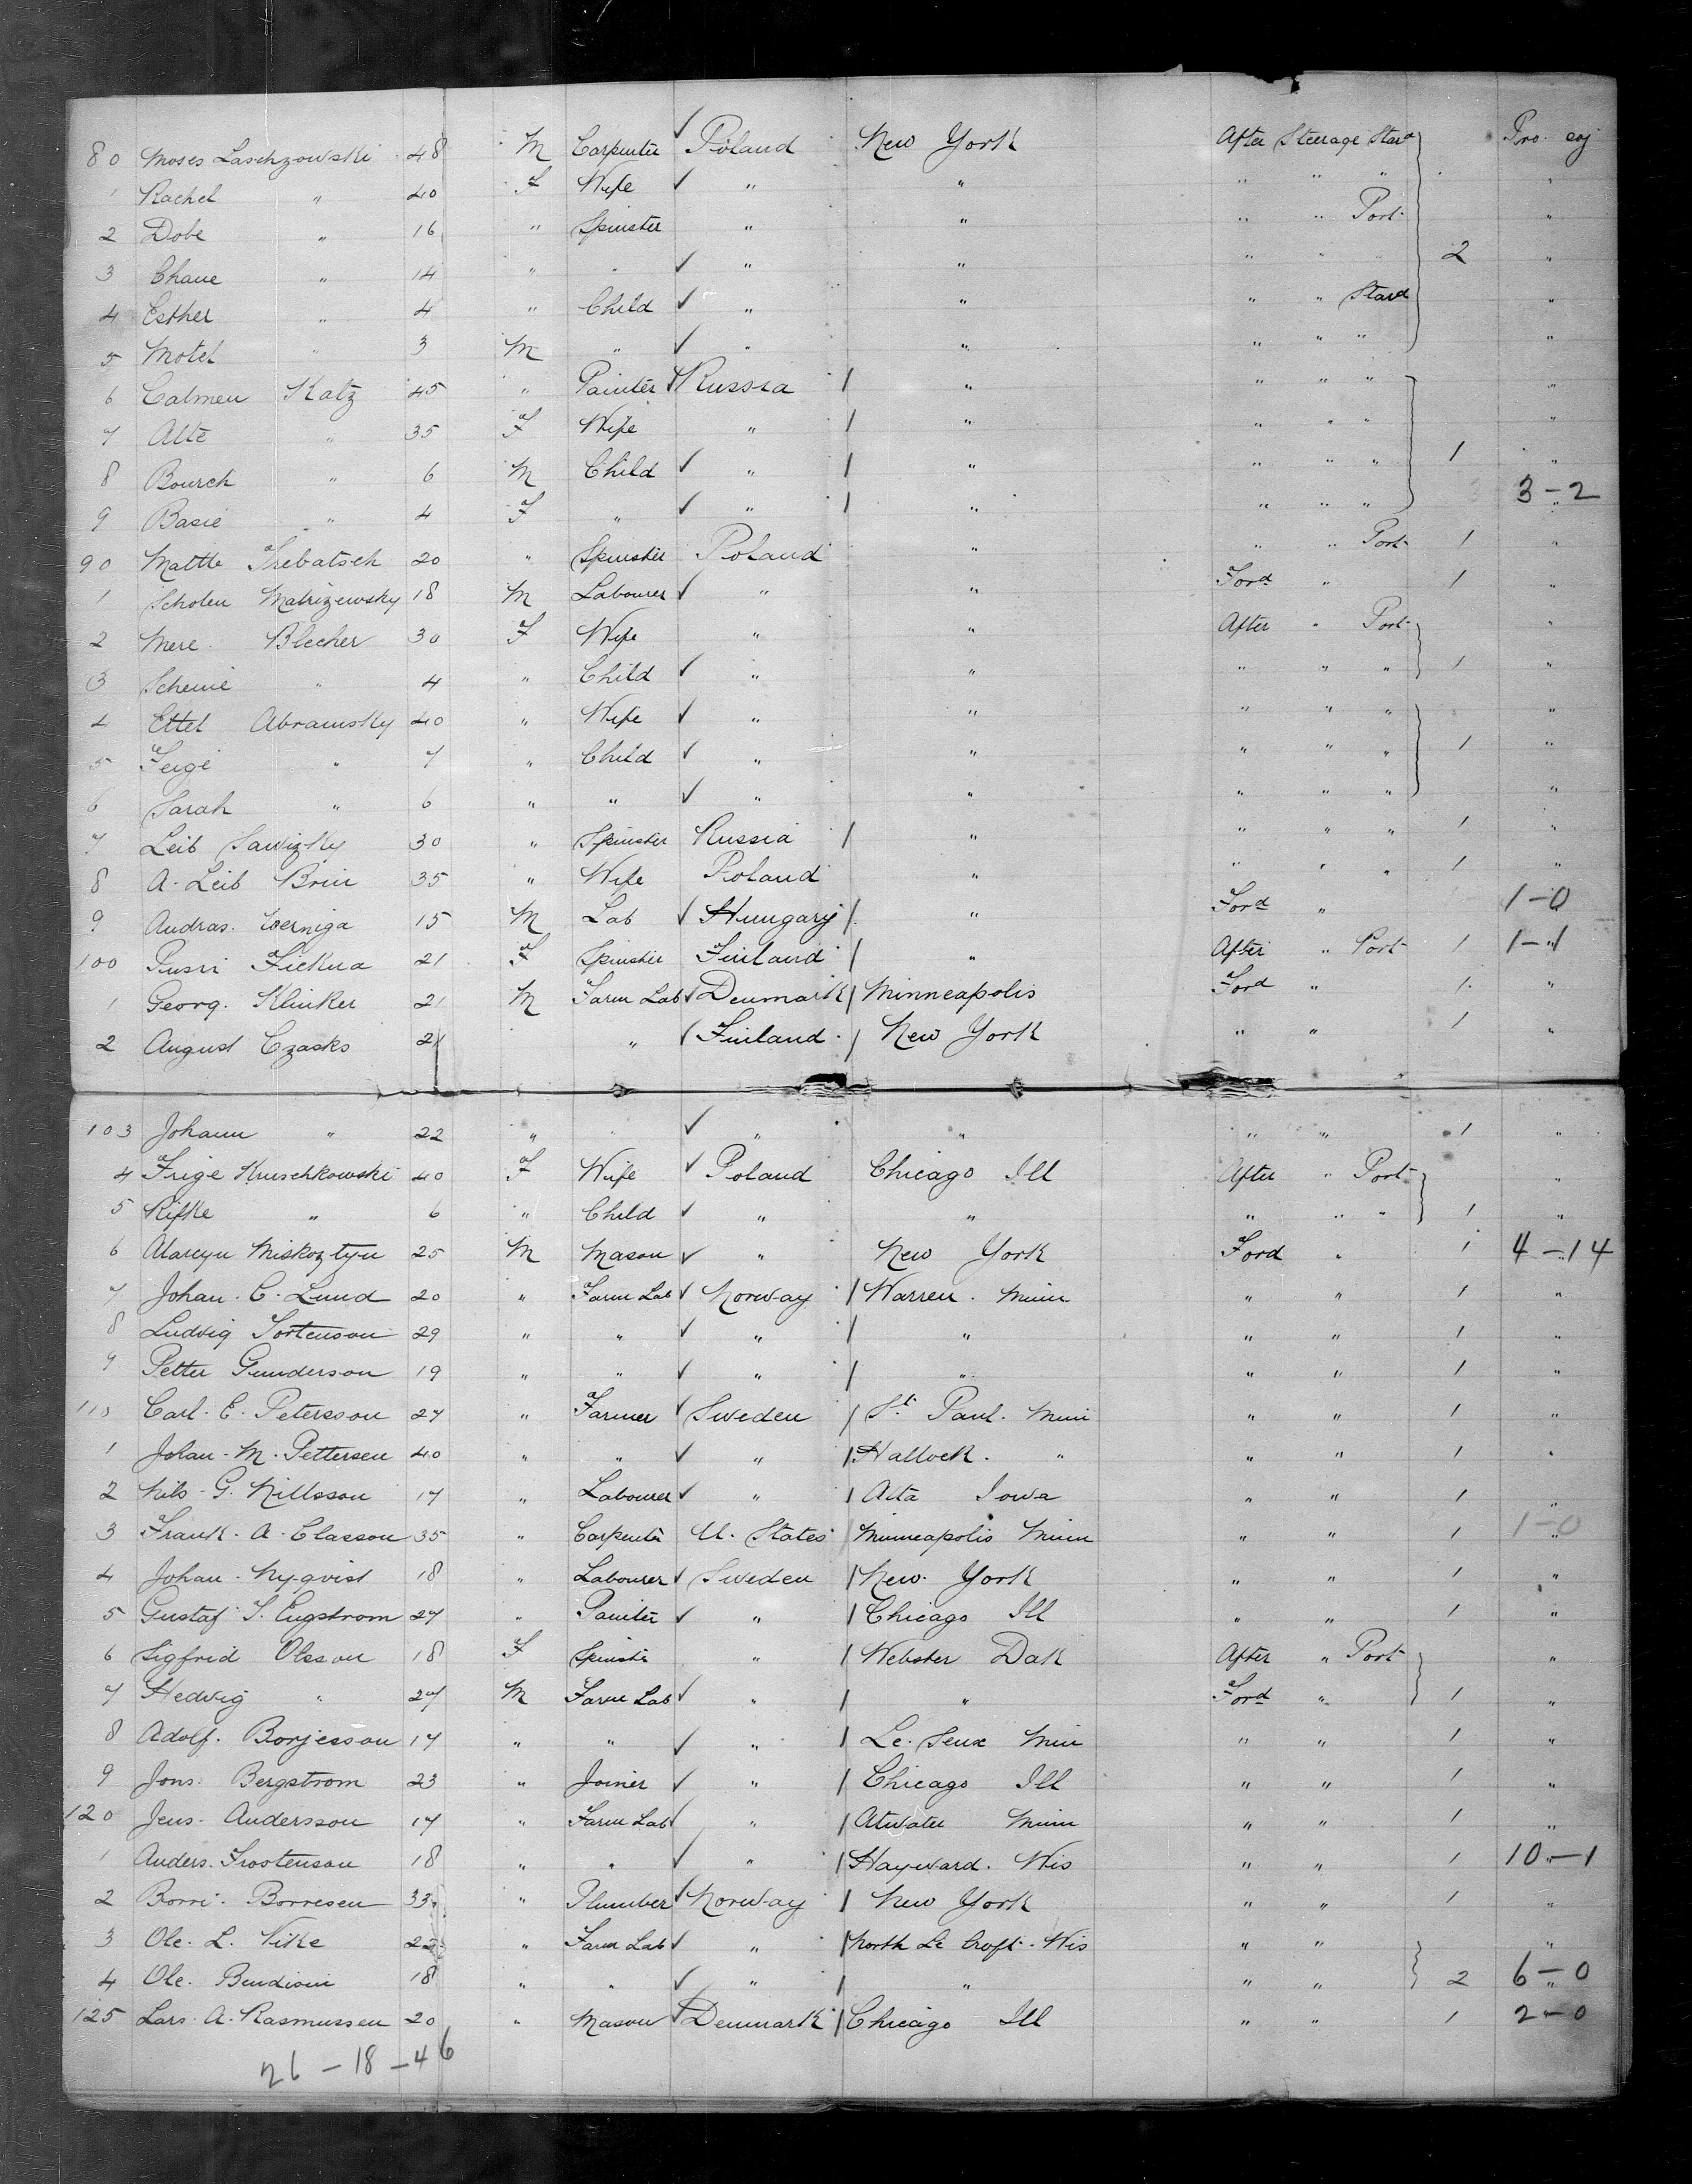 80 Moses Laschzowski 48 M Carpenter ✓ Poland New York After Steerage Stard Pro. soj
1 Rachel " 40 F Wife ✓ " " " " " "
2 Dobe " 16 " Spinster " " " " Port "
3 Chane " 14 " " ✓ " " " " " 2 "
4 Esther " 4 " Child ✓ " " " " Stard "
5 Motel " 3 M " ✓ " " " " " "
6 Calmen Katz 45 " Painter ✓ Russia / " " " " "
7 Alte " 35 F Wife " / " " " " "
8 Bourch " 6 M Child ✓ " / " " " " 1 "
9 Basie " 4 F " ✓ " / " " " " 3-2
90 Mattle Trebatsch 20 " Spinster Poland " " " Port 1 "
1 Scholen Matrizewsky 18 M Labourer ✓ " " Ford " 1 "
2 Mere Blecher 30 F Wife " " After " Port "
3 Scheine " 4 " Child ✓ " " " " " 1 "
4 Ettel Abramsky 40 " Wife ✓ " " " " " "
5 Feige " 7 " Child ✓ " " " " " 1 "
6 Sarah " 6 " " ✓ " " " " " "
7 Leib Sawizky 30 " Spinster Russia / " " " " 1 "
8 A. Leib Brin 35 " Wife Poland " " " " 1 "
9 Andras. 15 M Lab ✓ Hungary / " Ford " 1-0
100 Fickna 21 F Spinster Finland / " After " Port 1 1-1
1 Georg. Klinker 21 M Farm Lab ✓ Denmark / Minneapolis Ford " 1 "
2 August Czasks 21 " ✓ Finland / New York " " 1 "
103 Johann " 22 " " ✓ " " " " 1 "
4 Frige Kruschkowski 40 F Wife ✓ Poland Chicago Ill After " Port "
5 Rifke " 6 " Child ✓ " " " " " 1 "
6 Marcyn Miskoztyn 25 M Mason ✓ " New York Ford " 1 4-14
7 Johan. C. Lund 20 " Farm Lab ✓ Norway / Warren. Minn " " 1 "
8 Ludvig Tortenson 29 " " ✓ " / " " " 1 "
9 Petter Gunderson 19 " " ✓ " / " " " 1 "
110 Carl. E. Petersson 27 " Farmer ✓ Sweden / St. Paul. Minn " " 1 "
1 Johan. M. Pettersen 40 " " ✓ " / Hallock. " " " 1 "
2 Nils. G. Nillsson 17 " Labourer ✓ " / Alta Iowa " " 1 "
3 Frank. A. Classon 35 " Carpenter U. States / Minneapolis Minn " " 1 1-0
4 Johan. Nyqvist 18 " Labourer ✓ Sweden / New York " " 1 "
5 Gustaf S. Engstrom 27 " Painter ✓ " / Chicago Ill " " 1 "
6 Sigfrid Olsson 18 F Spinster " / Webster Dak After " Port "
7 Hedvig " 27 M Farm Lab ✓ " / " Ford " 1 "
8 Adolf. Borjesson 17 " " ✓ " / Le. Seux Min " " 1 "
9 Jons. Bergstrom 23 " Joiner ✓ " / Chicago Ill " " 1 "
120 Jens. Andersson 17 " Farm Lab ✓ " / Atwater Minn " " 1 "
1 Anders. Trostenson 18 " " ✓ " / Hayward. Wis " " 1 10-1
2 Borri. Borresen 33 " Plumber ✓ Norway / New York " " 1 "
3 Ole. L. Vike 22 " Farm Lab ✓ " / North Le Croft. Wis " " "
4 Ole. Bendisin 18 " " ✓ " / " " " 2 6-0
125 Lars. A. Rasmussen 20 " Mason ✓ Denmark / Chicago Ill " " 1 2-0
26-18-46